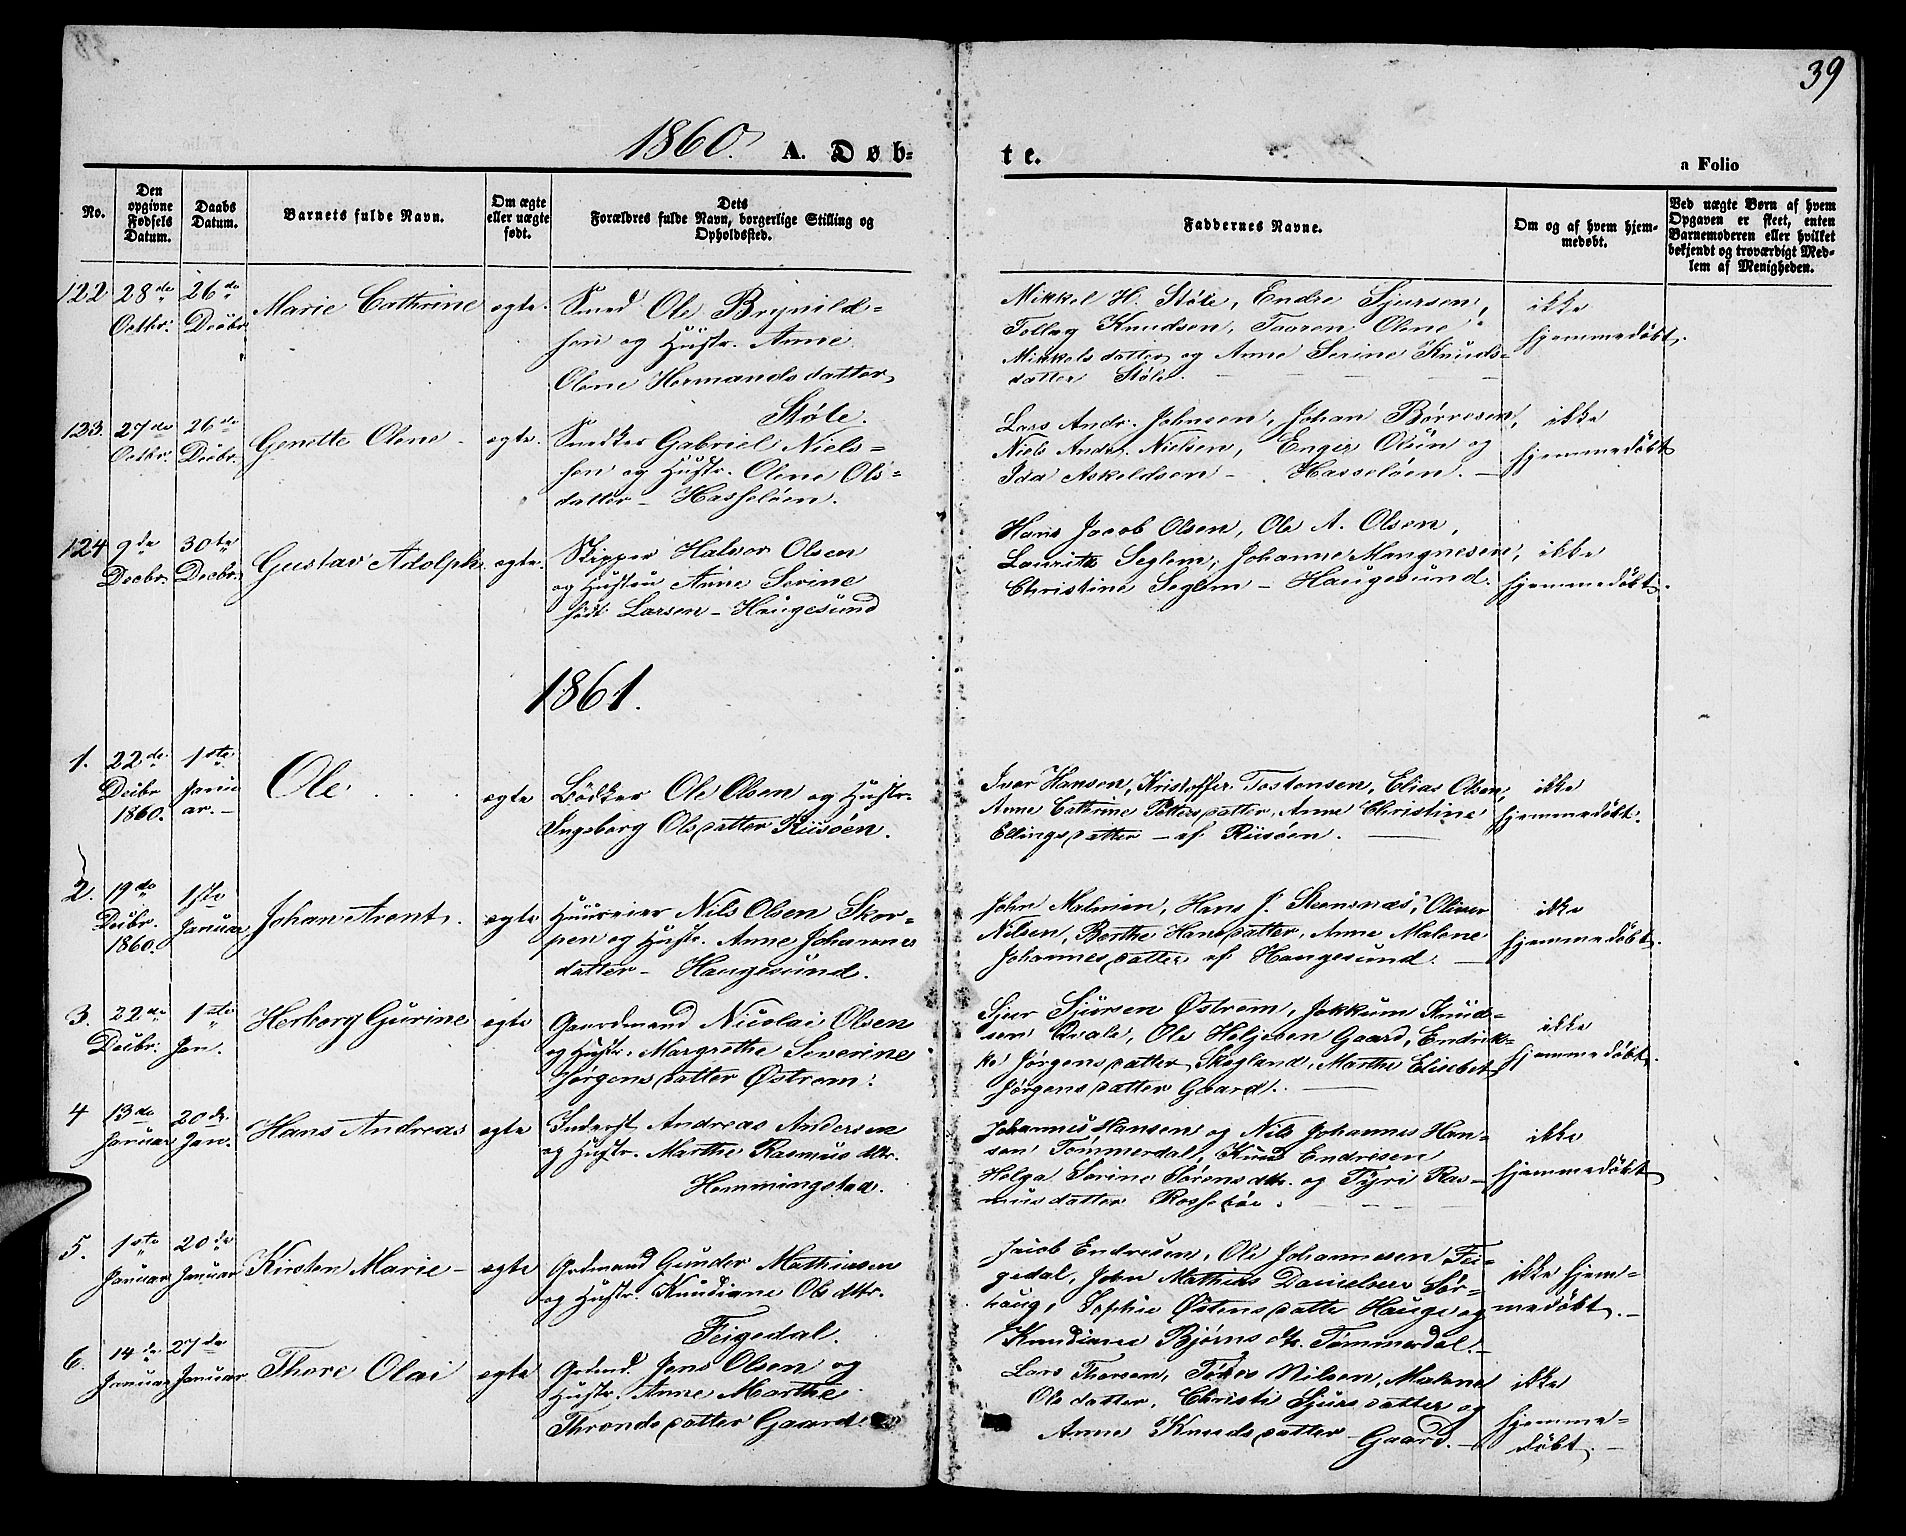 39
1860. A. Døb-
te.
a Folio
No.
Den opgivne Fødsels Datum.
Daabs Datum.
Barnets fulde Navn.
Om ægte eller uægte født.
Dets Forældres fulde Navn, borgerlige Stilling og Opholdssted.
Faddernes Navne.
Om og af hvem hjemmedøbt.
Ved uægte Børn af hvem Opgaven er skeet, enten Barnemoderen eller hvilket bekjendt og troværdigt Medlem af Menigheden.
122 28de Octbr. 26de Decbr. Marie Cathrine egte.
Smed Ole Brynild=
sen og Hustr. Anne
Olene Hermandsdatter
Støle.
Mikkel H. Støle, Endre Sjursen,
Tollag Knudsen, Taaren Olene
Mikkelsdatter og Anne Serine Knuds=
datter Støle.
ikke
hjemmedøbt.
123. 27de Octbr. 26de Decbr. Genette Olene - egte.
Snedker Gabriel Niels=
sen og Hustr. Olene Ols=
datter - Hasseløen.
Lars Andr. Johnsen, Johan Børresen,
Niels Andr. Nielsen, Enger Olsen og
Ida Askeldsen - Hasseløen. -
ikke
hjemmedøbt
124 9de Decbr. 30te Decbr. Gustav Adolph egte.
Skipper Halvor Olsen
og Hustru Anne Serine
født Larsen - Haugesund
Hans Jacob Olsen, Ole A. Olsen,
Laurits Seglem, Johanne Mangnesen,
Christine Seglem - Haugesund.
ikke
hjemmedøbt.
1861.
1. 22de Decbr 1860. 1ste Januar. - Ole egte
Bødker Ole Olsen og Hustr.
Ingeborg Olsdatter Riisøen.
Iver Hansen, Kristoffer Tostensen, Elias Olsen,
Anne Cathrine Pettersdatter, Anne Christine
Ellingsdatter - af Riisøen.
ikke
hjemmedøbt.
2. 19de Decbr. 1860. 1ste Januar Johan Arent. egte
Huuseier Nils Olsen Skor=
pen og Hustr. Anne Johannes
datter - Haugesund.
John Malmien, Hans J. Steensnæs, Oliver
Nilsen, Berthe Hansdatter, Anne Malene
Johannesdatter af Haugesund. -
ikke
hjemmedøbt.
3. 22de Decbr. 1ste Jan. Herborg Gurine egte
Gaardmand Nicolai Olsen
og Hustr. Margrethe Severine
Jørgensdatter Østrem.
Sjur Sjursen Østrem, Jokkum Knud=
sen Qvale, Ole Helgesen Gaard, Endrik=
ke Jørgensdatter Skogland, Marthe Elisebet
Jørgensdatter Gaard.
ikke
hjemmedøbt.
4 13de Januar 20de Jan. Hans Andreas egte
Inderst Andreas Andersen
og Hustr. Marthe Rasmusdtr.
Hemmingstad.
Johannes Hansen og Nils Johannes Han=
sen Tømmerdal, Knud Endresen
Helga Serine Sørensdtr. og Tyri Ras=
musdatter Rossebøe.
ikke
hjemmedøbt
5. 1ste Januar 20de Januar Kirsten Marie - egte
Grdmand Gunder Mathiasen
og Hustr. Knudiane Olsdtr.
Feigedal.
Jacob Endresen, Ole Johannesen Fei=
gedal, John Mathias Danielsen Sør=
haug, Sophie Østensdatter Hauge og
Knudiane Bjørnsdtr. Tømmerdal. -
ikke hjem=
medøbt. -
6. 14de Januar 27de Januar Thore Olai egte
Grdmd. Jens Olsen og
Hustr. Anne Marthe
Throndsdatter Gaard
Lars Thorsen, Nilsen, Malene
Olsdatter, Christi Sjursdatter og
Anne Knudsdatter Gaard. -
ikke
hjemme=
døbt. -